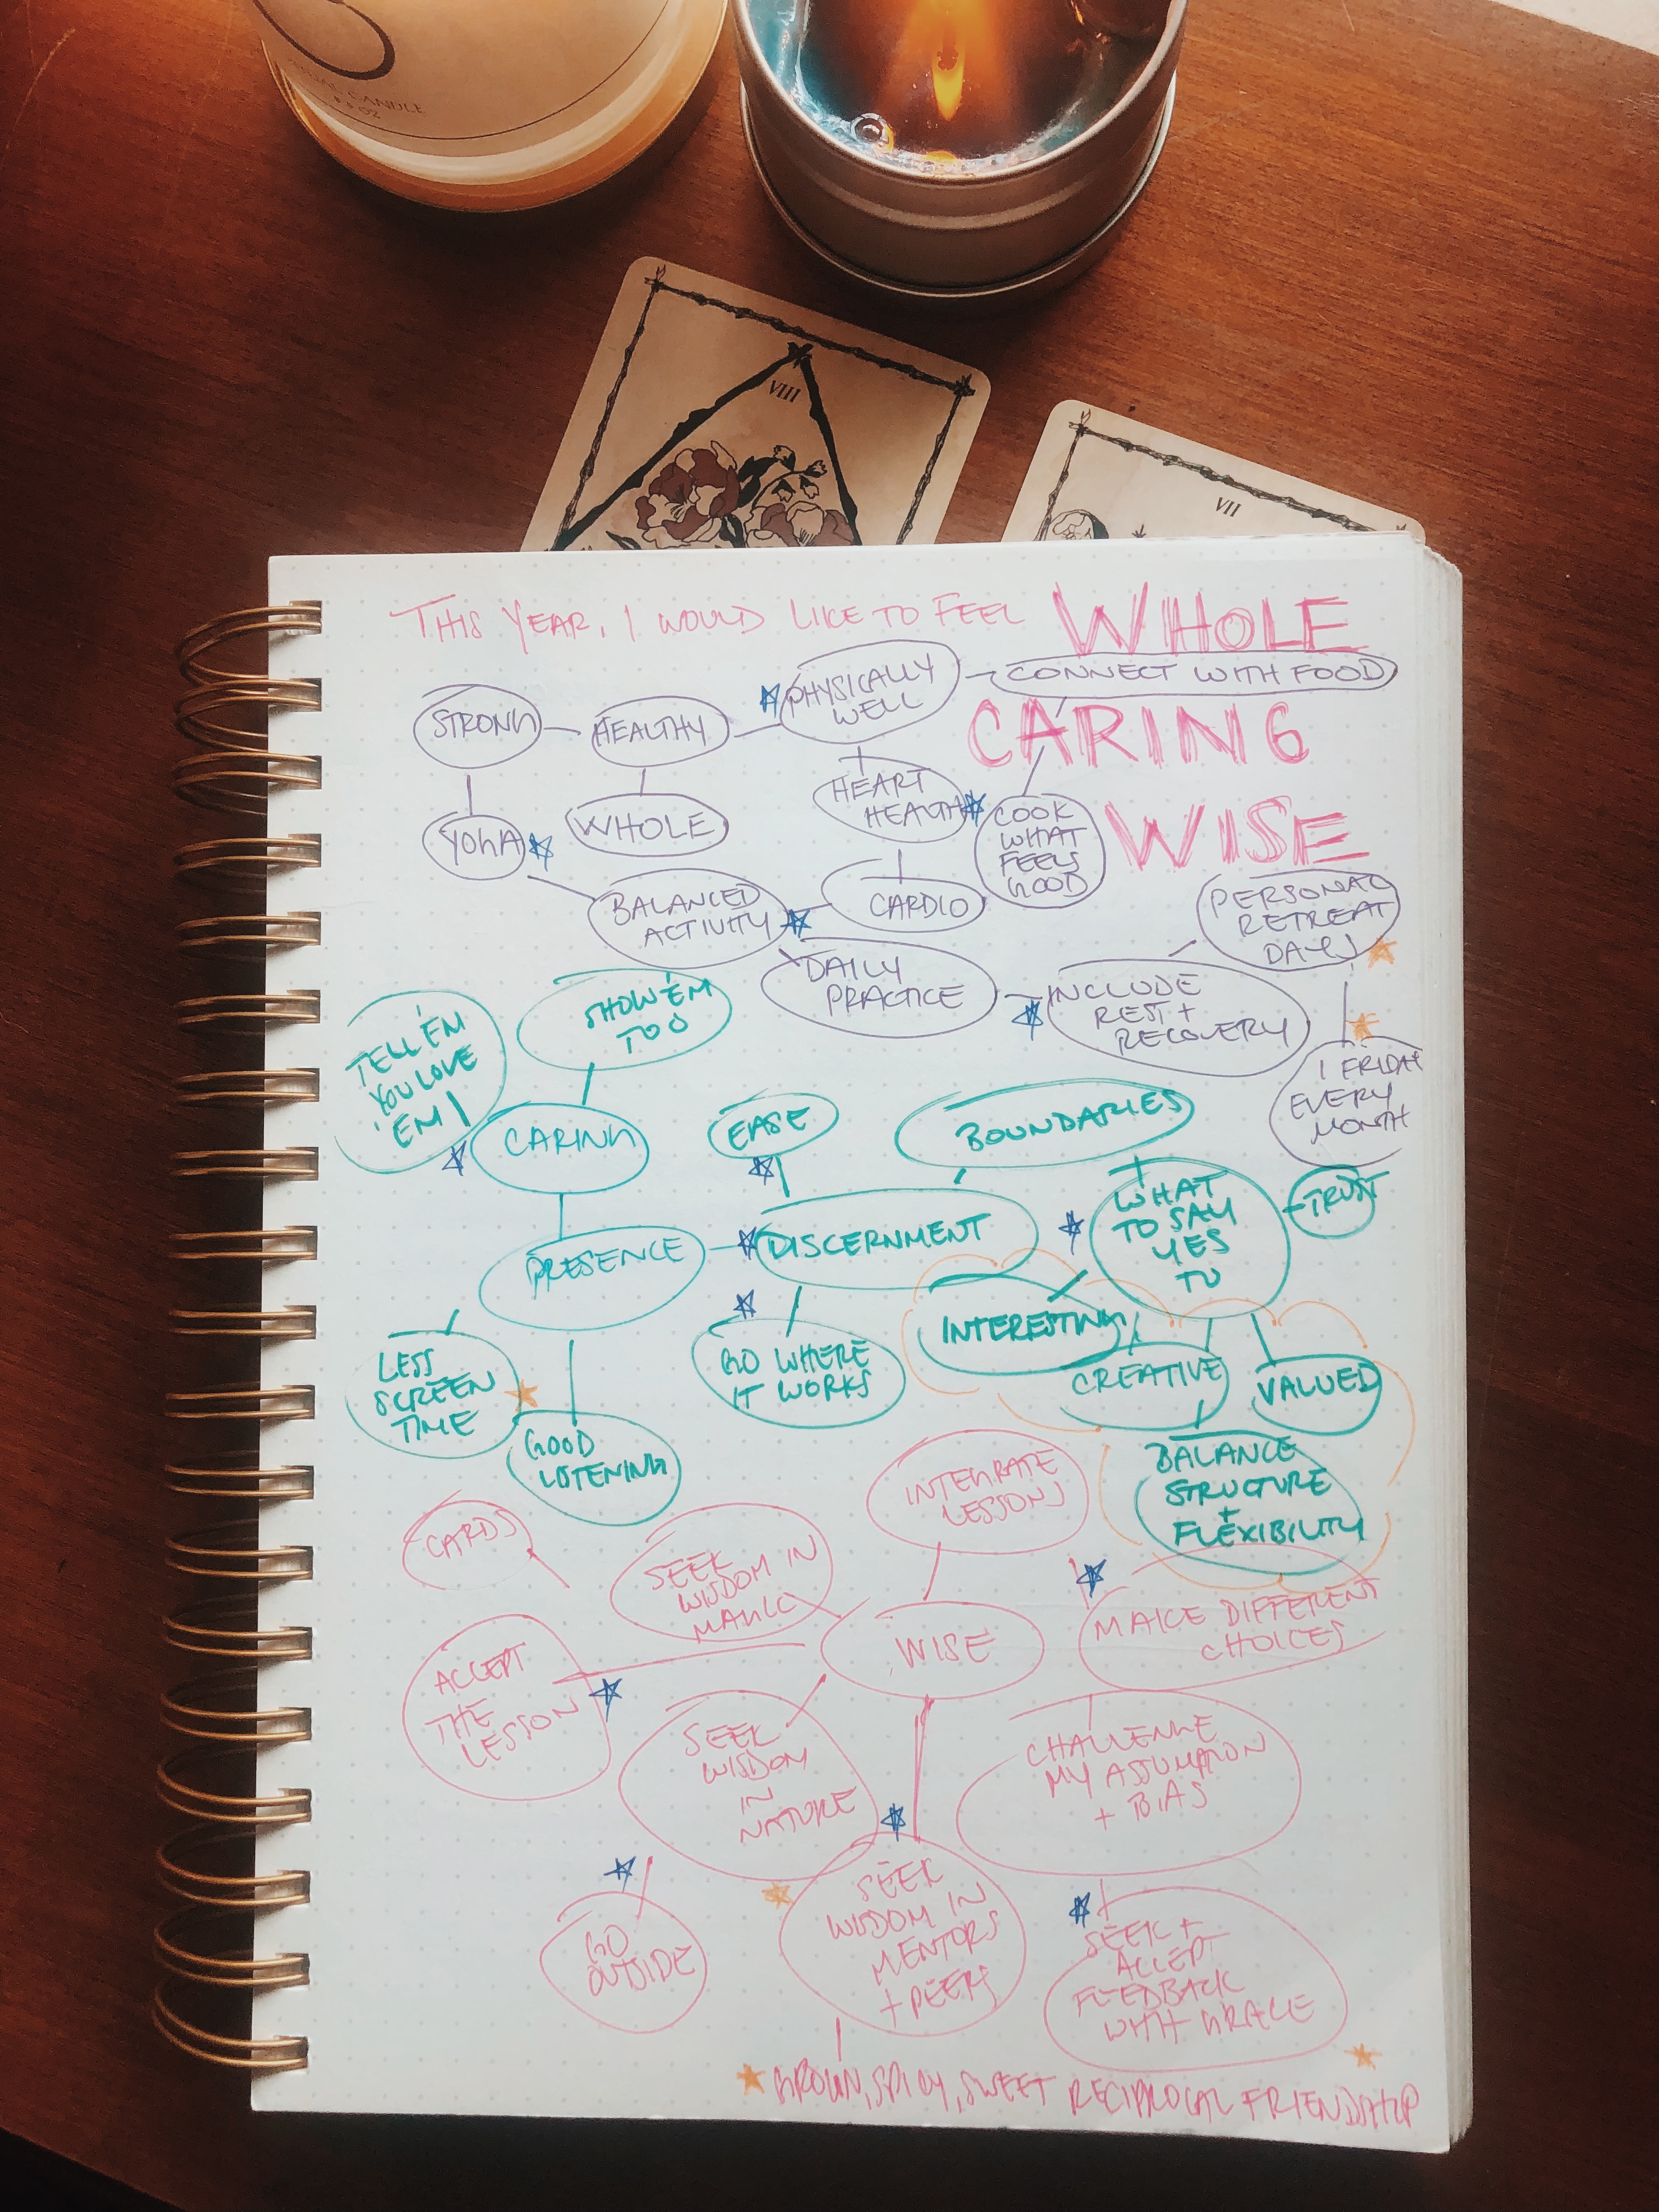 CANDLE
OZ
VIII
VII
THIS YEAR, I WOULD LIKE TO FEEL WHOLE
CARING
WISE
STRONG
HEALTHY
PHYSICALLY
WELL
CONNECT WITH FOOD
YOGA
WHOLE
HEART
HEALTH
COOK
WHAT
FEELS
GOOD
BALANCED
ACTIVITY
CARDIO
DAILY
PRACTICE
INCLUDE
REST +
RECOVERY
PERSONAL
RETREAT
DAYS
1 FRIDAY
EVERY
MONTH
TELL 'EM
YOU LOVE
'EM!
SHOW 'EM
TOO
CARING
EASE
BOUNDARIES
PRESENCE
DISCERNMENT
WHAT
TO SAY
YES
TO
TRUST
LESS
SCREEN
TIME
GOOD
LISTENING
GO WHERE
IT WORKS
INTERESTING
CREATIVE
VALUED
BALANCE
STRUCTURE
+
FLEXIBILITY
CARDS
SEEK
WISDOM IN
MAGIC
INTEGRATE
LESSONS
WISE
MAKE DIFFERENT
CHOICES
ACCEPT
THE
LESSON
SEEK
WISDOM
IN
NATURE
CHALLENGE
MY ASSUMPTION
+ BIAS
GO
OUTSIDE
SEEK
WISDOM IN
MENTORS
+ PEERS
SEEK +
ACCEPT
FEEDBACK
WITH GRACE
GROWN, SPICY, SWEET RECIPROCAL FRIENDSHIP